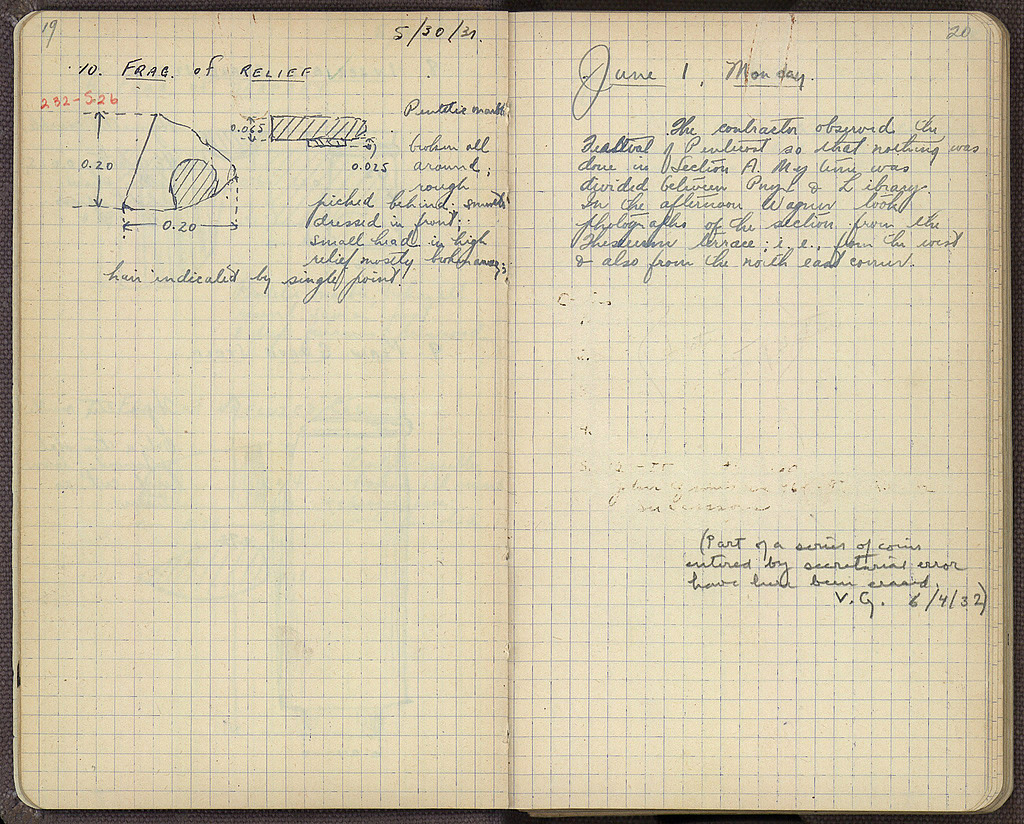 19
5/30/31.
10. FRAG. of RELIEF
232-S26
Pentelic marble;
0.065
broken all
0.025
around;
0.20
rough
picked behind; smooth
dressed in front;
0.20
small head in high
relief mostly broken away;
hair indicated by single point.
20
June 1, Monday.
The contractor observed the
Festival of Pentecost so that nothing was
done in Section A. My time was
divided between Pnyx & Library.
In the afternoon Wagner took
photographs of the section from the
Theseum terrace; i.e., from the west
& also from the north east corner.
(Part of a series of coins
entered by secretarial error
have here been erased.
V.G. 6/4/32)